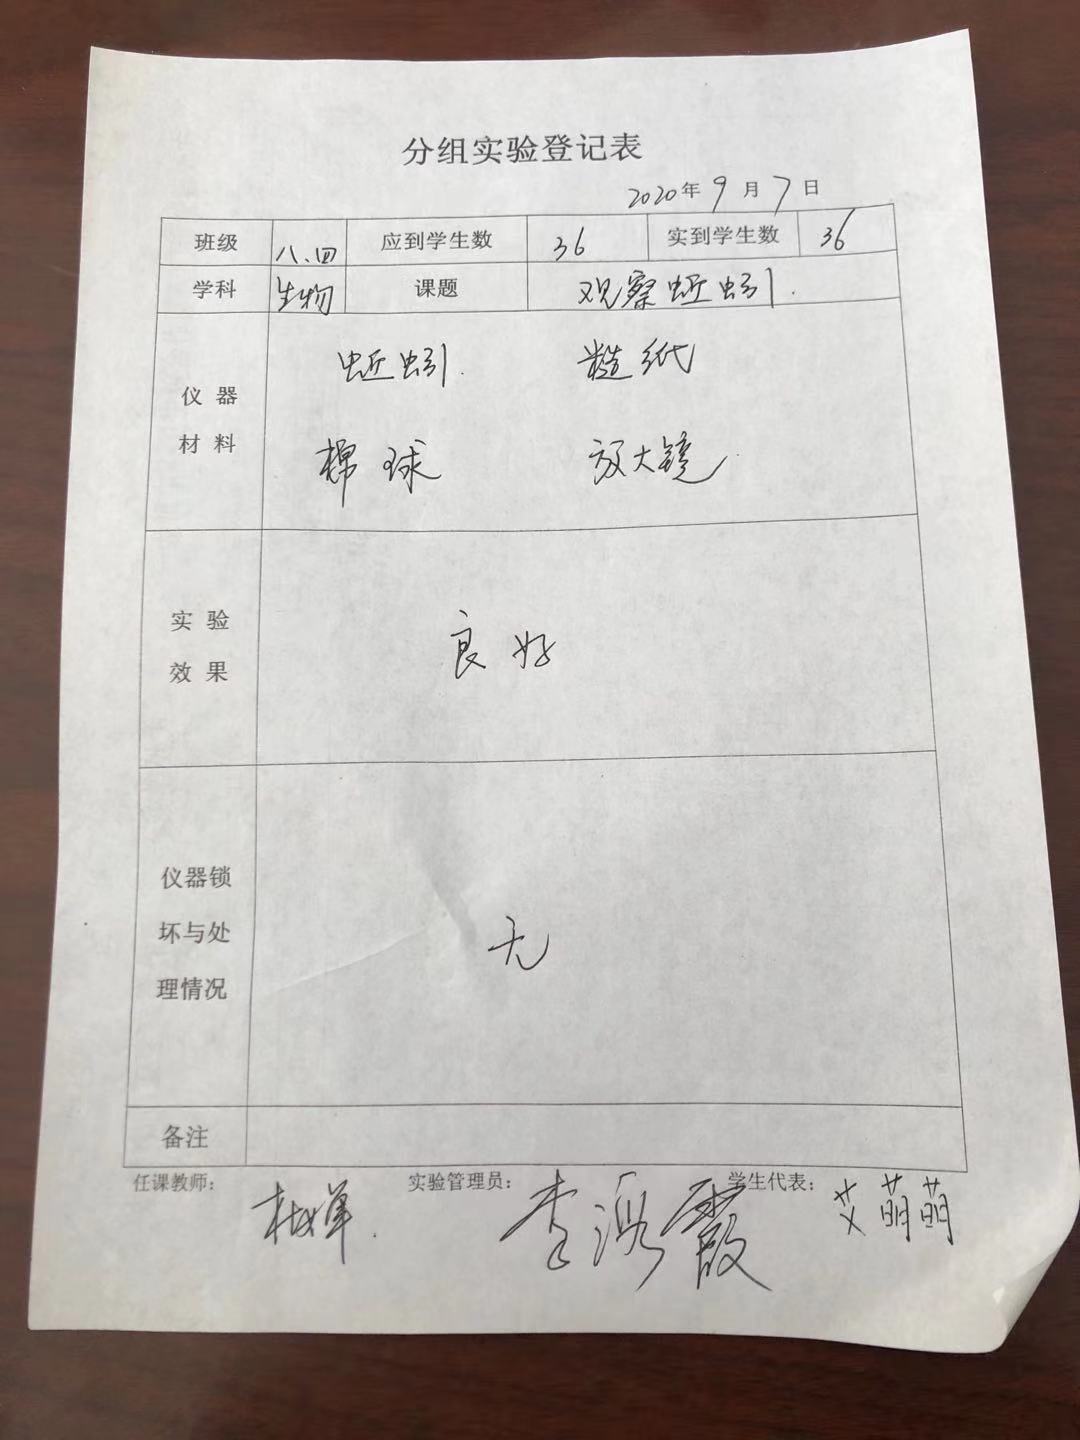 分组实验登记表
2020年9月7日
班级 八.四 应到学生数 36 实到学生数 36
学科 生物 课题 观察蚯蚓.
仪器
材料
蚯蚓. 糙纸
棉球 放大镜
实验
效果
良好
仪器锁
坏与处
理情况
无
备注
任课教师： 实验管理员： 学生代表：
李 霞 艾萌萌